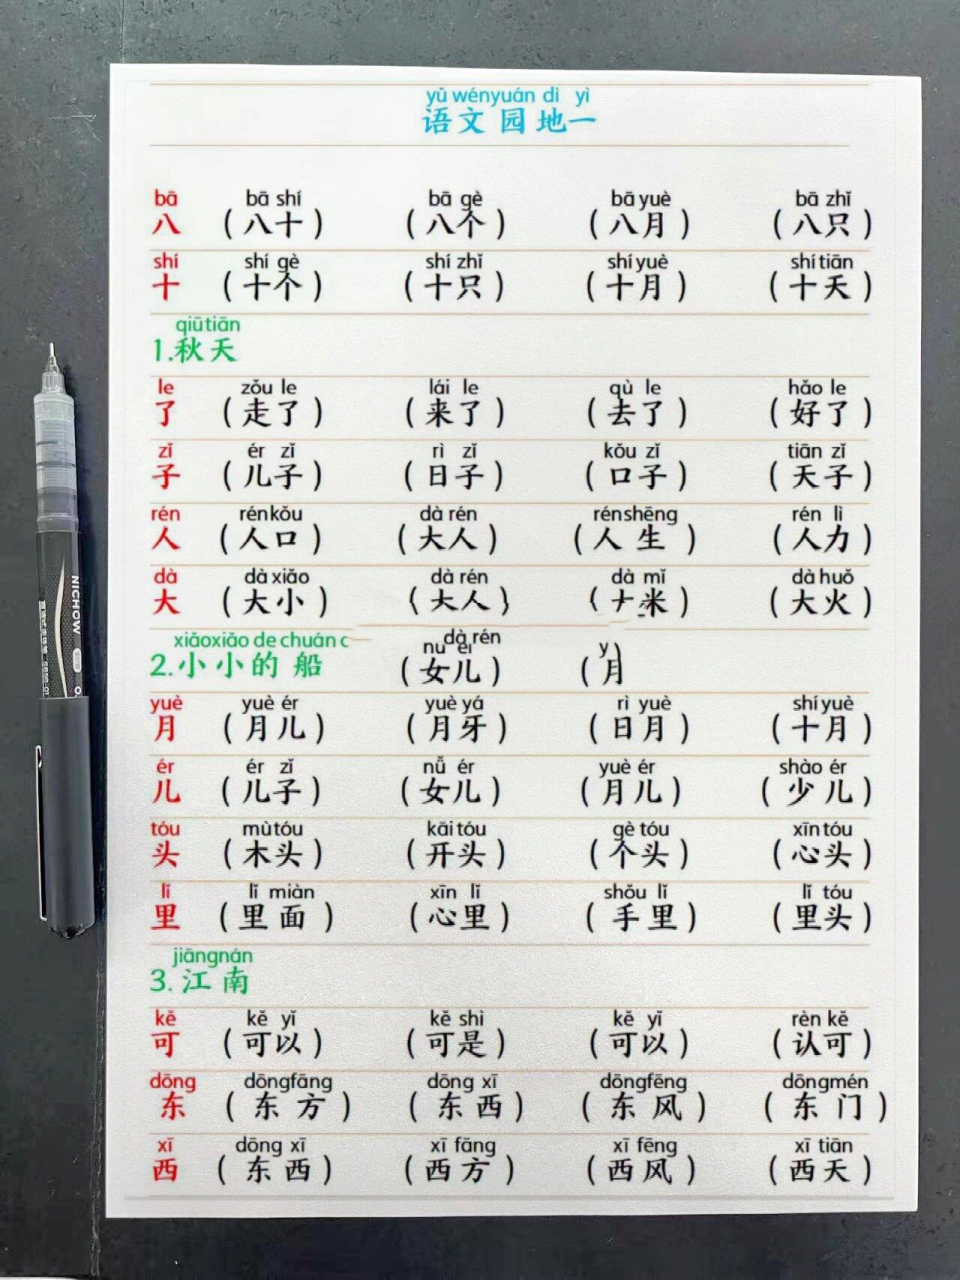 yǔ wényuán dì yì
语文园地一
bā bā shí bā gè bā yuè bā zhǐ
八 (八十) (八个) (八月) (八只)
shí shí gè shí zhǐ shí yuè shí tiān
十 (十个) (十只) (十月) (十天)
qiūtiān
1.秋天
le zǒu le lái le qù le hǎo le
了 (走了) (来了) (去了) (好了)
zǐ ér zǐ rì zǐ kǒu zǐ tiān zǐ
子 (儿子) (日子) (口子) (天子)
rén rénkǒu dà rén rénshēng rén lì
人 (人口) (大人) (人生) (人力)
dà dà xiǎo dà rén dà mǐ dà huǒ
大 (大小) (大人) (大米) (大火)
xiǎoxiǎo de chuán dà rén
2.小小的船 (女儿) (月
yuè yuè ér yuè yá rì yuè shí yuè
月 (月儿) (月牙) (日月) (十月)
ér ér zǐ nǚ ér yuè ér shào ér
儿 (儿子) (女儿) (月儿) (少儿)
tóu mù tóu kāi tóu gè tóu xīn tóu
头 (木头) (开头) (个头) (心头)
lǐ lǐ miàn xīn lǐ shǒu lǐ lǐ tóu
里 (里面) (心里) (手里) (里头)
jiāngnán
3.江南
kě kě yǐ kě shì kě yǐ rèn kě
可 (可以) (可是) (可以) (认可)
dōng dōngfāng dōng xī dōngfēng dōngmén
东 (东方) (东西) (东风) (东门)
xī dōng xī xī fāng xī fēng xī tiān
西 (东西) (西方) (西风) (西天)
NICHOW